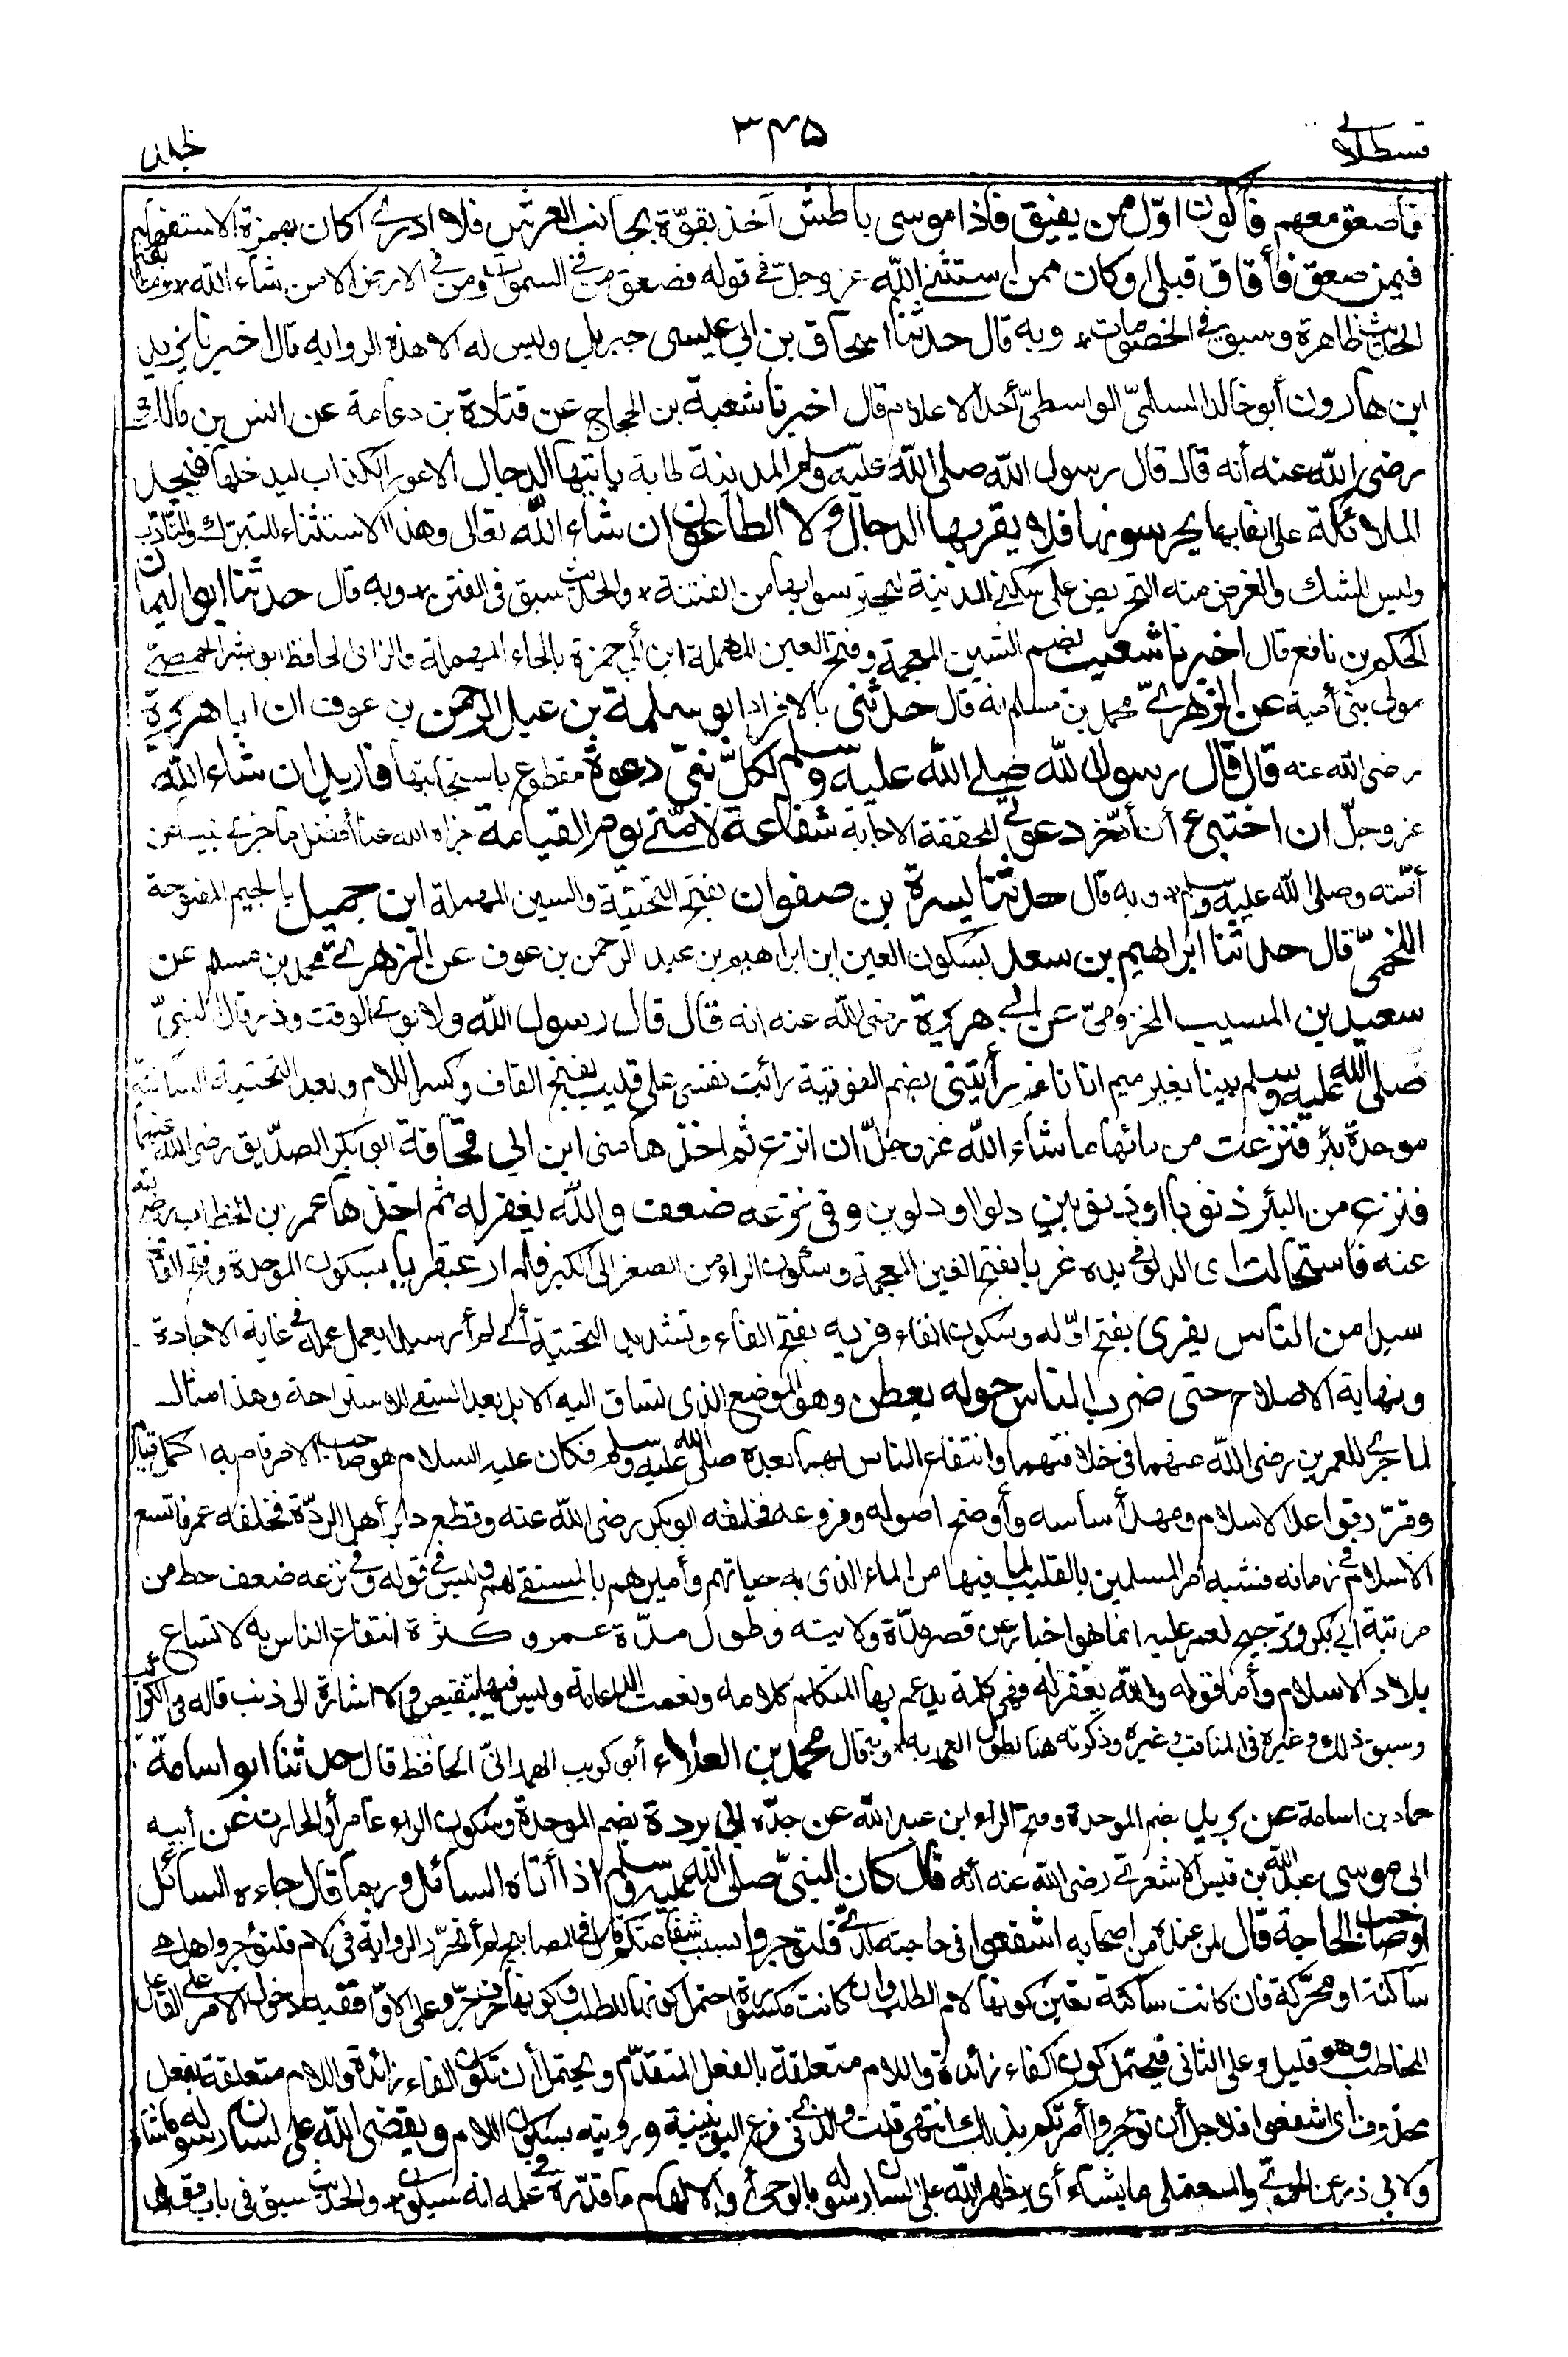 قسطلانی
٣٤٥
جلد
فأصعق معهم فأكون اوّل من يفيق فاذا موسى باطش آخذ بقوّة بجانب العرش فلا ادرى اكان بهمزة الاستفهام
فيمن صعق فأفاق قبلى او كان ممن استثنى الله عز وجلّ فى قوله فصعق من فى السموات ومن فى الارض الا من شاء الله
الحديث ظاهرة وسبق فى الخصومات * وبه قال حدثنا اسحاق بن ابى عيسى جبريل وليس له الا هذه الرواية قال اخبرنا يزيد
ابن هارون أبو خالد السلمىّ الواسطىّ أحد الاعلام قال اخبرنا شعبة بن الحجاج عن قتادة بن دعامة عن انس بن مالك
رضى الله عنه أنه قال قال رسول الله صلى الله عليه وسلم المدينة طابة يأتيها الدجال الاعور الكذاب ليدخلها فيجد
الملائكة على انقابها يحرسونها فلا يقربها الدجال ولا الطاعون ان شاء الله تعالى وهذا الاستثناء للتبرك والتأدب
وليس للشك والغرض منه التحريض على سكنى المدينة ليحترسوا بها من الفتنة * والحديث سبق فى الفتن * وبه قال حدثنا ابو اليمان
الحكم بن نافع قال اخبرنا شعيب بضم الشين المعجمة وفتح العين المهملة ابن أبى حمزة بالحاء المهملة والزاى الحافظ ابو بشر الحمصىّ
مولى بنى أمية عن الزهرىّ محمد بن مسلم انه قال حدثنى بالافراد ابو سلمة بن عبد الرحمن بن عوف ان ابا هريرة
رضى الله عنه قال قال رسول الله صلى الله عليه وسلم لكلّ نبىّ دعوة مقطوع باستجابتها فاريد ان شاء الله
عز وجلّ ان اختبئ أن أدّخر دعوتى المحققة الاجابة شفاعة لامّتى يوم القيامة جزاه الله عنا أفضل ما جزى نبيا عن
أمّته وصلى الله عليه وسلم * وبه قال حدثنا يسرة بن صفوان بفتح التحتية والسين المهملة ابن جميل بالجيم المفتوحة
اللخمىّ قال حدثنا ابراهيم بن سعد بسكون العين ابن ابراهيم بن عبد الرحمن بن عوف عن الزهرىّ محمد بن مسلم عن
سعيد بن المسيب المخزومىّ عن ابى هريرة رضى الله عنه انه قال قال رسول الله ولابوى الوقت وذر قال النبىّ
صلى الله عليه وسلم بينا بغير ميم انا نائم رأيتنى بضم الفوقية رأيت نفسى على قليب بفتح القاف وكسر اللام وبعد التحتية الساكنة
موحدة بئر فنزعت من مائها ما شاء الله عز وجلّ ان انزع ثم اخذها منى ابن ابى قحافة ابو بكر الصدّيق رضى الله عنهما
فنزع من البئر ذنوبا او ذنوبين دلوا او دلوين وفى نزعه ضعف والله يغفر له ثم اخذها عمر بن الخطاب رضى الله
عنه فاستحالت اى الدلو فى يده غربا بفتح الغين المعجمة وسكون الراء من الصغر الى الكبر فلم ار عبقريا بسكون الموحدة وفتح القاف
سيدا من الناس يفرى بفتح اوّله وسكون الفاء فريه بفتح الفاء وتشديد التحتية أى لم أر سيدا يعمل عمله فى غاية الاجادة
ونهاية الاصلاح حتى ضرب الناس حوله بعطن وهو الموضع الذى تساق اليه الابل بعد السقى للاستراحة وهذا مثال
لما جرى للعمرين رضى الله عنهما فى خلافتهما وانتفاع الناس بهما بعده صلى الله عليه وسلم فكان عليه السلام هو صاحب الامر قام به اكمل قيام
وقرّر قواعد الاسلام ومهد أساسه وأوضح اصوله وفروعه فخلفه ابو بكر رضى الله عنه وقطع دابر أهل الردّة فخلفه عمر فاتسع
الاسلام فى زمانه فشبه أمر المسلمين بالقليب لما فيها من الماء الذى به حياتهم وأميرهم بالمستقى لهم وليس فى قوله وفى نزعه ضعف حط من
مرتبة ابى بكر وترجيح لعمر عليه انما هو اخبار عن قصر مدّة ولايته وطول مدّة عمر وكثرة انتفاع الناس به لاتساع
بلاد الاسلام وأما قوله والله يغفر له فهى كلمة يدعم بها المتكلم كلامه ونعمت الدعامة وليس فيها تنقيص ولا اشارة الى ذنب قاله فى الكواكب
وسبق ذلك وغيره فى المناقب وغيره وذكرته هنا لطول العهد به * وبه قال محمد بن العلاء أبو كريب الهمدانىّ الحافظ قال حدثنا ابو اسامة
حماد بن اسامة عن بريد بضم الموحدة وفتح الراء ابن عبد الله عن جدّه ابى بردة بضم الموحدة وسكون الراء عامر أو الحارث عن أبيه
ابى موسى عبد الله بن قيس الاشعرىّ رضى الله عنه أنه قال كان النبىّ صلى الله عليه وسلم اذا أتاه السائل وربما قال جاءه السائل
او صاحب الحاجة قال لمن عنده من اصحابه اشفعوا فى حاجته لدىّ فلتؤجروا بسبب شفاعتكم قال فى المصابيح لم أتحرّر الرواية فى لام فلتؤجروا هل هى
ساكنة او محرّكة فان كانت ساكنة تعين كونها لام الطلب وان كانت مكسورة احتمل كونها للطلب وكونها حرف جرّ وعلى الاوّل ففيه دخول الامر على الفاعل
المخاطب وهو قليل وعلى الثانى فيحتمل كون الفاء زائدة واللام متعلقة بالفعل المتقدّم ويحتمل أن تكون الفاء زائدة واللام متعلقة بفعل
محذوف اى اشفعوا فلاجل أن تؤجروا أمرتكم بذلك انتهى قلت والذى فى فرع اليونينية ورويته بسكون اللام ويقضى الله على لسان رسوله ما شاء
ولابى ذر عن الحموىّ والمستملى ما يشاء أى يظهر الله على لسان رسوله بالوحى أو الالهام ما قدّره فى علمه انه سيكون * والحديث سبق فى باب قوله